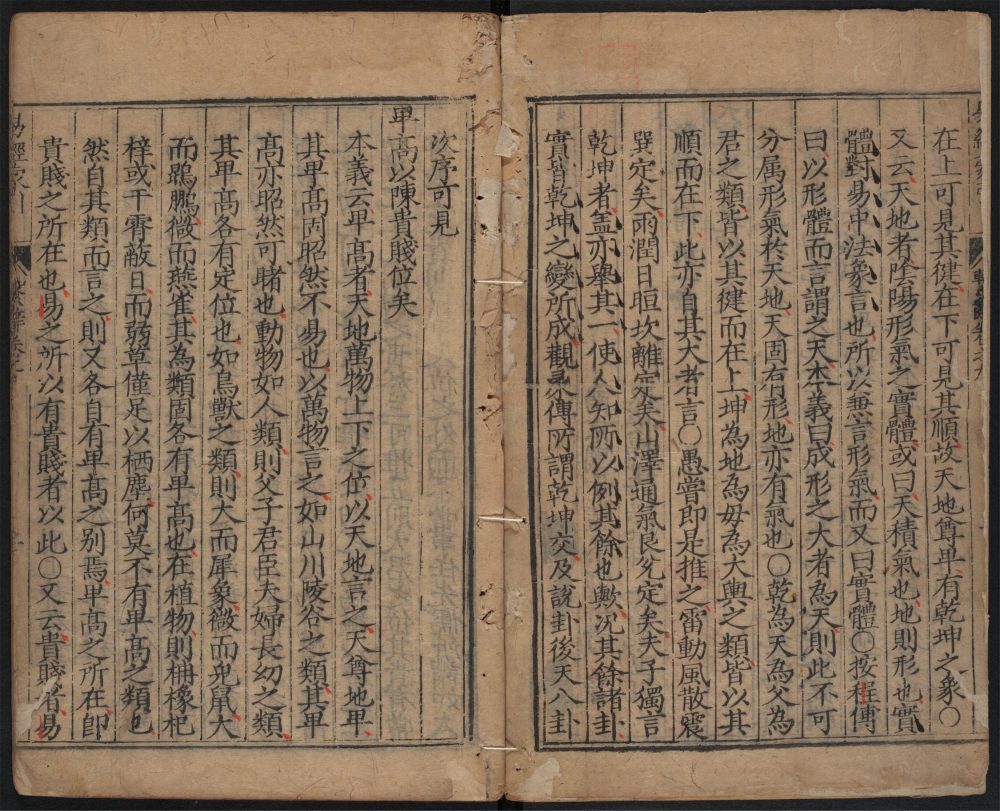 在上可見其健在下可見其順故天地尊卑有乾坤之象○
又云天地者陰陽形氣之實體或曰天積氣也地則形也實
體對易中法象言也所以兼言形氣而又曰實體○按程傳
曰以形體而言謂之天本義曰成形之大者為天則此不可
分属形氣於天地天固有形地亦有氣也○乾為天為父為
君之類皆以其健而在上坤為地為母為大輿之類皆以其
順而在下此亦自其大者言○愚嘗即是推之雷動風散震
巽定矣雨潤日晅坎離定矣山澤通氣艮兌定矣夫子獨言
乾坤者盖亦舉其一使人知所以例其餘也歟况其餘諸卦
實皆乾坤之變所成觀彖傳所謂乾坤交及説卦後天八卦
次序可見
卑高以陳貴賤位矣
本義云卑髙者天地萬物上下之位以天地言之天尊地卑
其卑髙固昭然不易也以萬物言之如山川陵谷之類其卑
髙亦昭然可睹也動物如人類則父子君臣夫婦長幼之類
其卑髙各有定位也如鳥獸之類則大而犀象微而兒鼠大
而鵾鵬微而燕雀其為類固各有卑髙也在植物則楠橡杞
梓或干霄蔽日而弱草僅足以栖塵何莫不有卑髙之類也
然自其類而言之則又各自有卑髙之别焉卑髙之所在即
貴賤之所在也易之所以有貴賤者以此○又云貴賤者易
易經蒙引